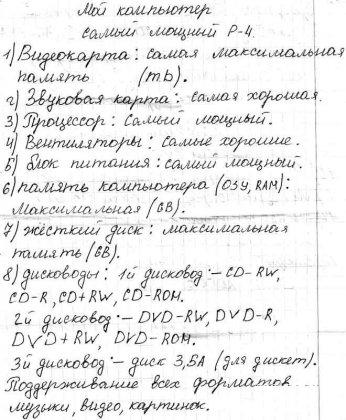 Мой компьютер
самый мощный Р-4.
1) Видеокарта: самая максимальная
память (mb).
2) Звуковая карта: самая хорошая.
3) Процессор: самый мощный.
4) Вентиляторы: самые хорошие.
5) блок питания: самый мощный.
6) память компьютера (ОЗУ, RAM):
Максимальная (GB).
7) жёсткий диск: максимальная
память (GB).
8) дисководы: 1й дисковод – CD-RW,
CD-R, CD+RW, CD-ROM.
2й дисковод – DVD-RW, DVD-R,
DVD+RW, DVD-ROM.
3й дисковод – диск 3,5А (для дискет).
Поддерживание всех форматов
музыки, видео, картинок.